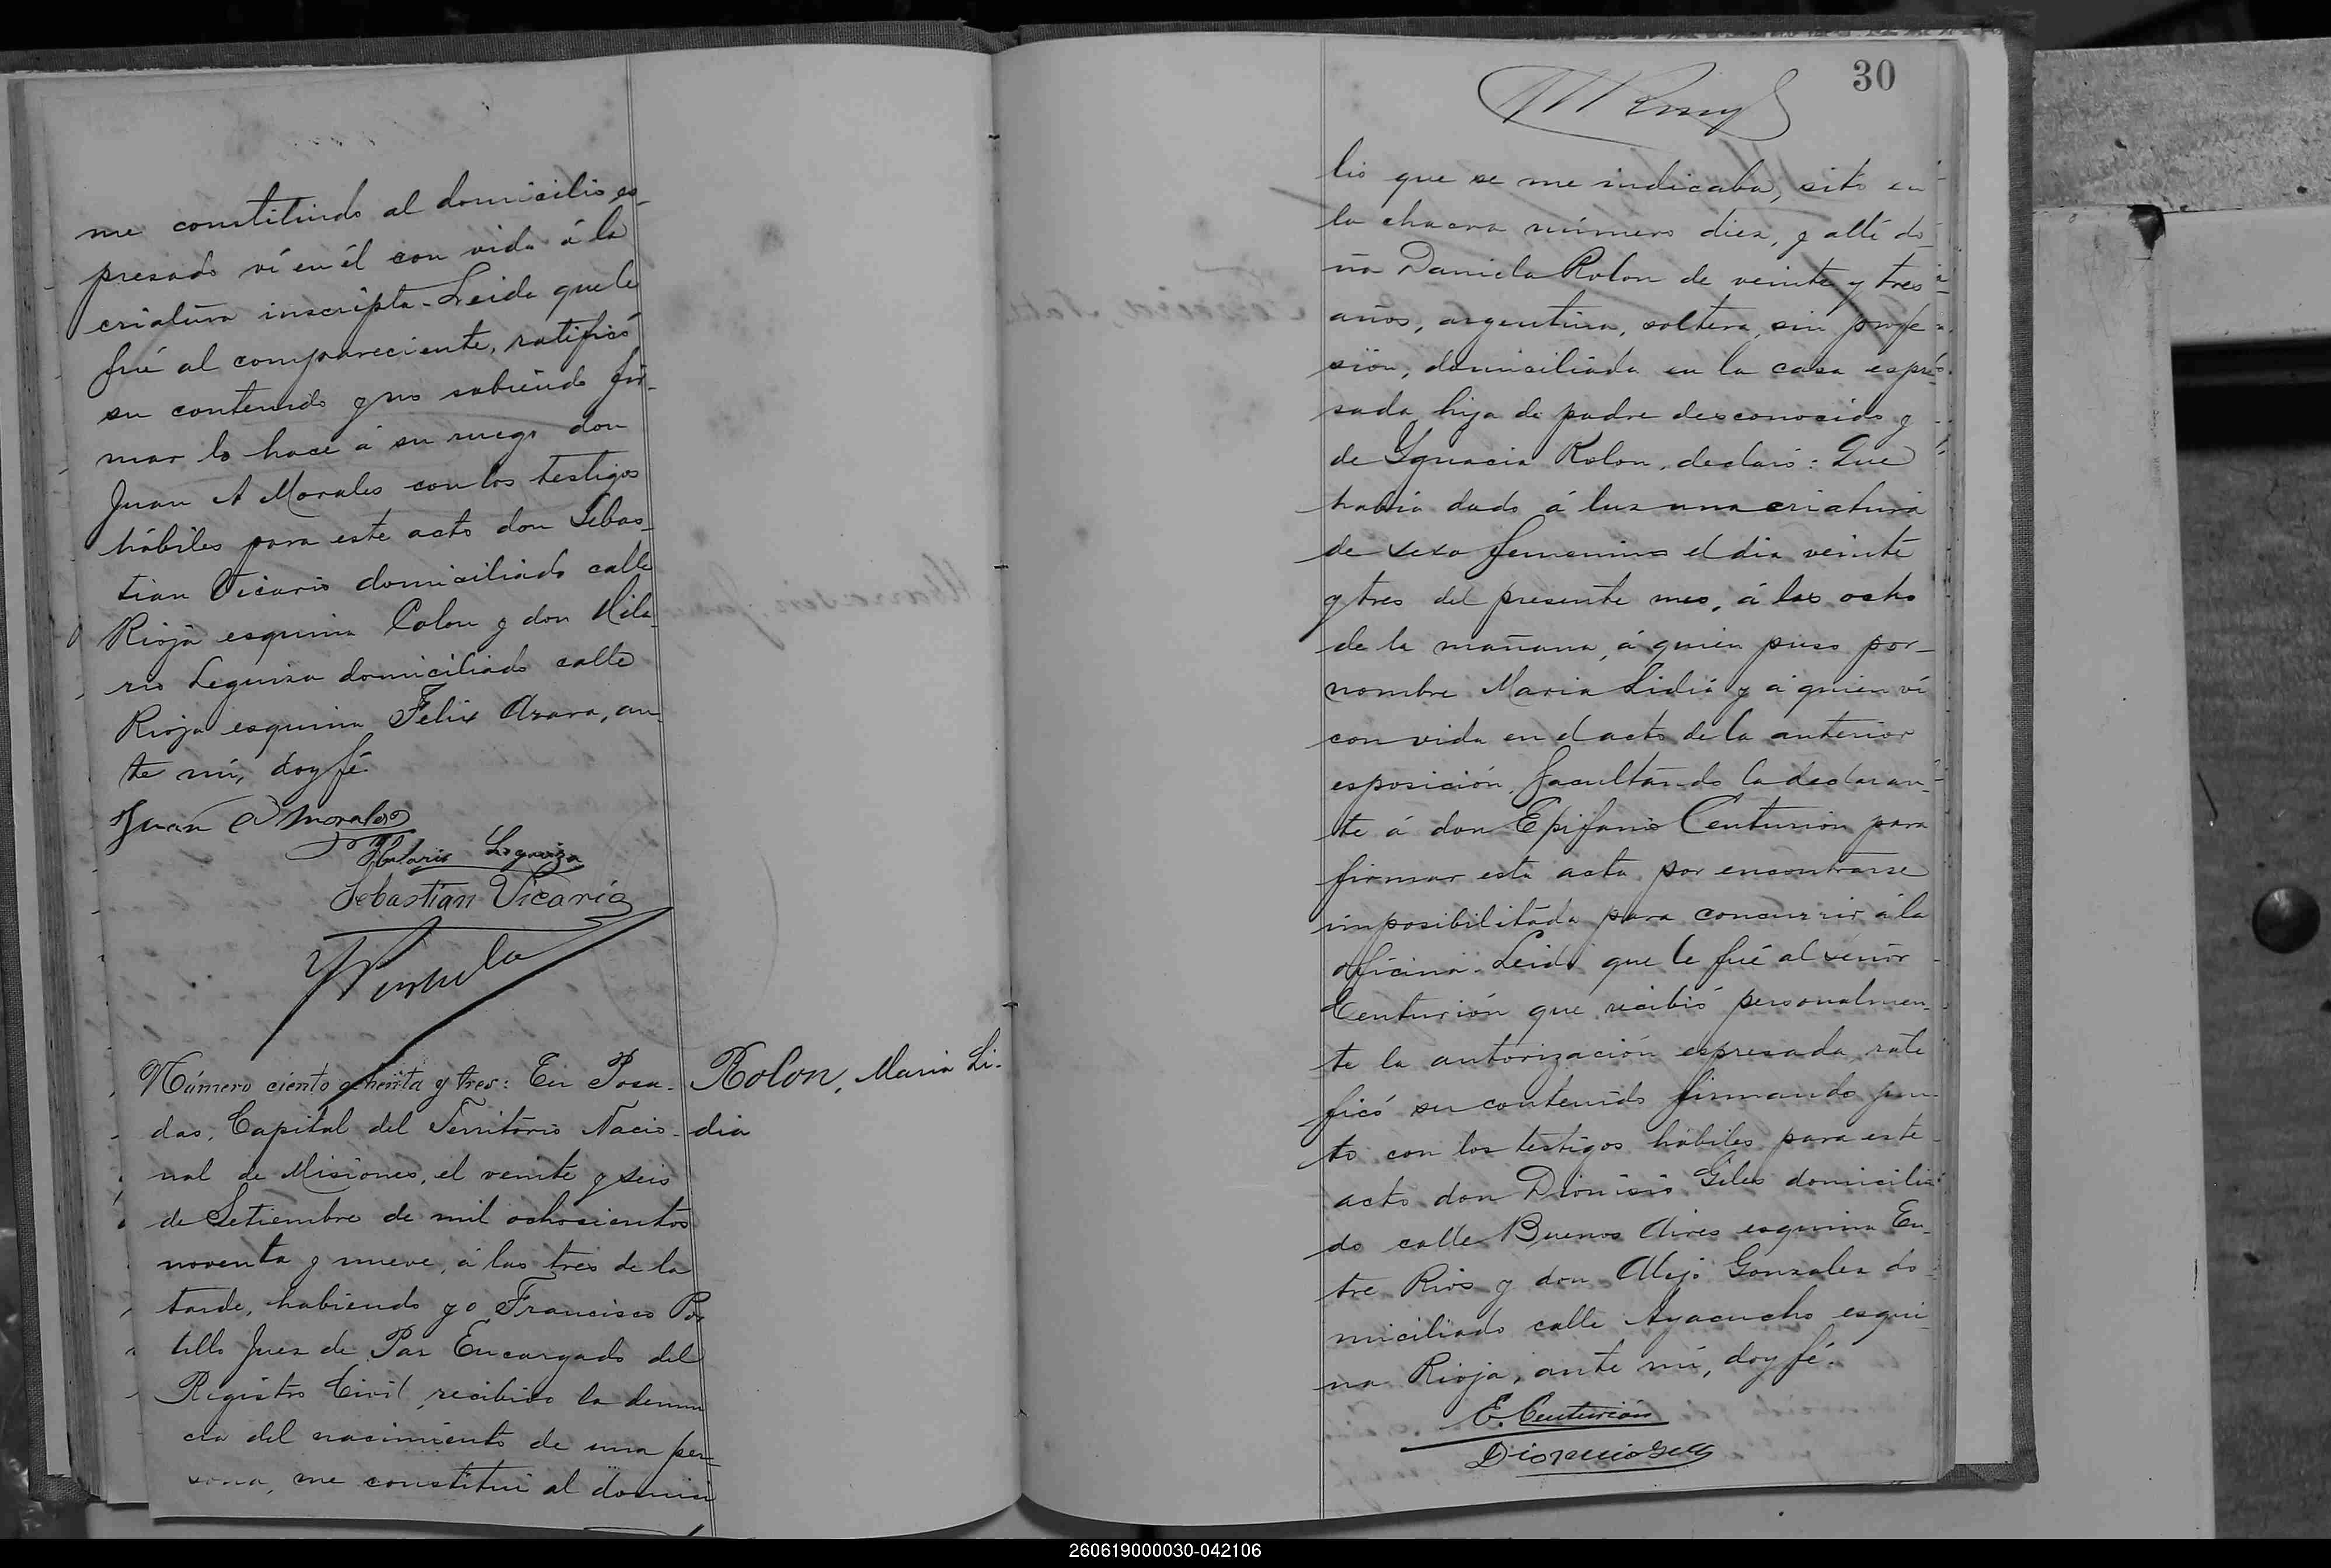 me constituido al domicilio es-
presado ví en él con vida á la
criatura inscripta - Leida que le
fué al compareciente, ratificó
su contenido y no sabiendo fir-
mar lo hace á su ruego don
Juan A Morales con los testigos
hábiles para este acto don Sebas-
tian Vicario domiciliado calle
Rioja esquina Colon y don Hila-
rio Leguiza domiciliado calle
Rioja esquina Felix Azara, an-
te mí, doy fé.
Juan A Morales
Hilario Leguiza
Sebastian Vicario
Número ciento ochenta y tres: En Posa-
das, Capital del Territorio Nacio-
nal de Misiones, el veinte y seis
de Setiembre de mil ochocientos
noventa y nueve, á las tres de la
tarde, habiendo yo Francisco Por
tillo Juez de Paz Encargado del
Registro Civil, recibido la denun
cia del nacimiento de una per-
sona, me constituí al domici
Rolon, Maria Li-
dia
30
lio que se me indicaba, sito en
la chacra número diez, y allí do-
ña Daniela Rolon de veinte y tres
años, argentina, soltera, sin profe-
sión, domiciliada en la casa espre-
sada, hija de padre desconocido y
de Ygnacia Rolon, declaró: Que
habia dado á luz una criatura
de sexo femenino el dia veinte
y tres del presente mes, á las ocho
de la mañana, á quien puso por-
nombre Maria Lidia y á quien ví
con vida en el acto de la anterior
esposición, facultando la declaran-
te á don Epifanio Centurion para
firmar esta acta por encontrarse
imposibilitada para concurrir á la
oficina - Leida que le fué al señor
Centurión que recibió personalmen-
te la autorización espresada, rati
ficó su contenido firmando jun-
to con los testigos hábiles para este
acto don Dionisio Giles domicilia
do calle Buenos Aires esquina En-
tre Rios y don Alejo Gonzalez do-
miciliado calle Ayacucho esqui-
na Rioja, ante mí, doy fé.
E. Centurión
Dionicio
260619000030-042106